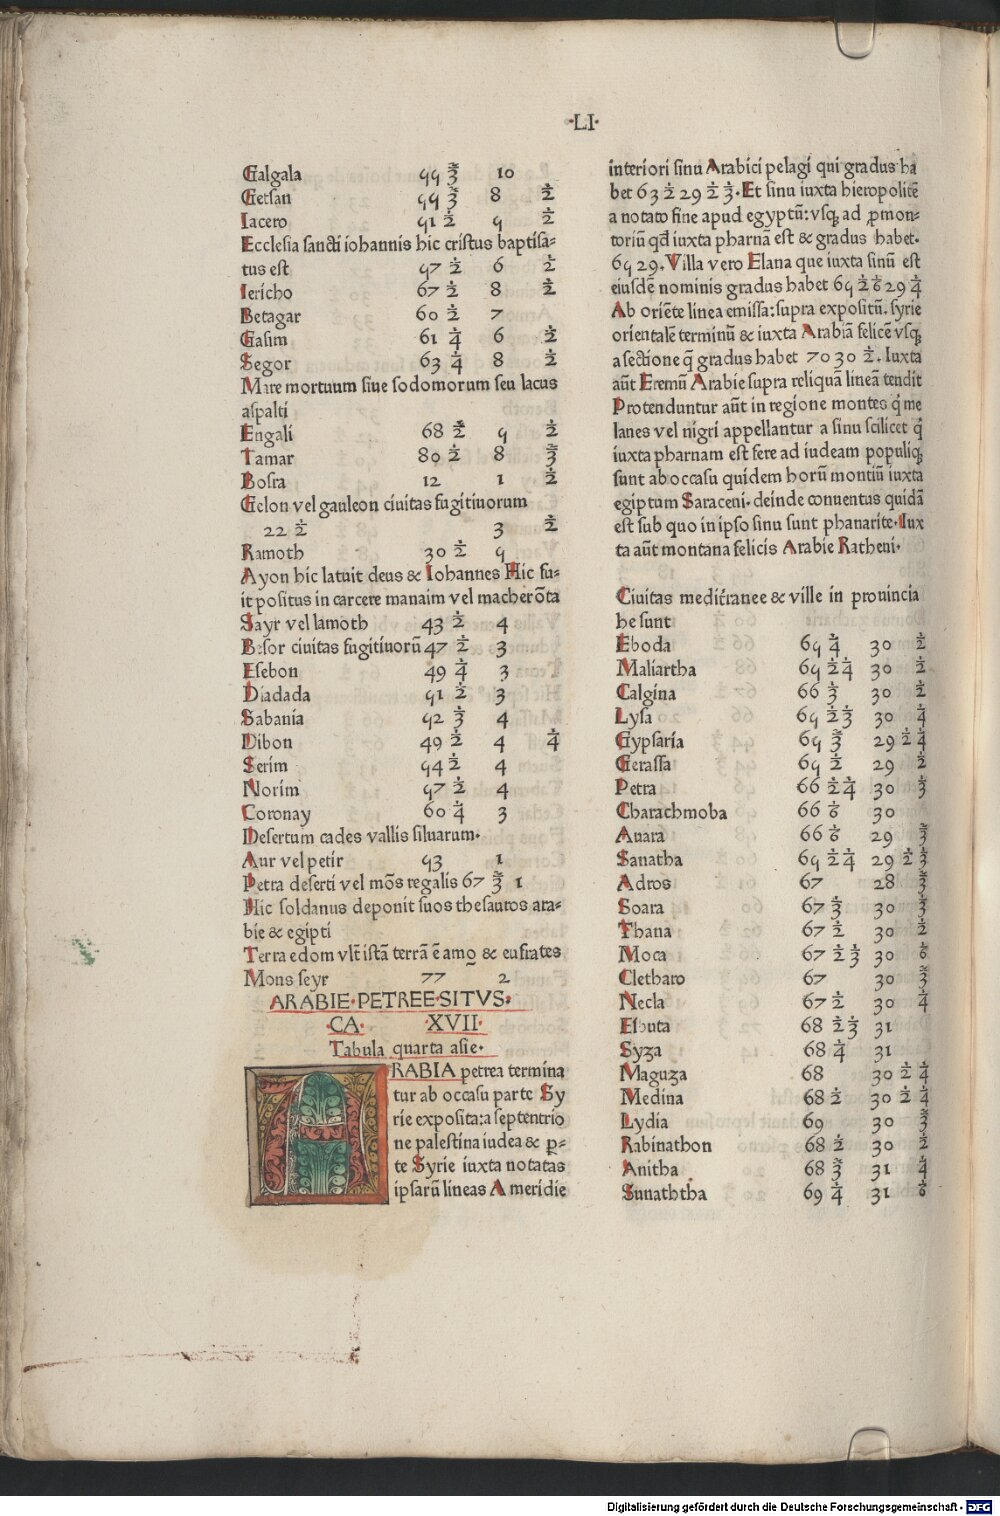 ·LI·
Galgala 55 3/2 10
Getsan 55 3/2 8 1/2
Iacero 51 1/2 5 1/2
Ecclesia sancti iohannis hic cristus baptisa=
tus est 57 1/2 6 1/2
Iericho 67 1/2 8 1/2
Betagar 60 1/2 7
Gasim 61 1/4 6 1/2
Segor 63 1/4 8 1/2
Mare mortuum siue sodomorum seu lacus
aspalti
Engali 68 1/2 5 1/2
Tamar 80 1/2 8 2/3
Bosra 12 1 1/2
Gelon vel gauleon ciuitas fugitiuorum
22 1/2 3 1/2
Ramoth 30 1/2 5
Ayon hic latuit deus & Iohannes Hic fu=
it positus in carcere manaim vel macherōta
Sayr vel lamoth 43 1/2 4
Besor ciuitas fugitiuorū 47 1/2 3
Esebon 49 1/4 3
Diadada 51 1/2 3
Sabania 52 1/3 4
Dibon 49 1/2 4 1/4
Serim 54 1/2 4
Norim 57 1/2 4
Coronay 60 1/4 3
Desertum cades vallis siluarum·
Aur vel petir 53 1
Petra deserti vel mōs regalis 67 2/3 1
Hic soldanus deponit suos thesauros ara=
bie & egipti
Terra edom vlt̄ istā terrā ē amo & eufrates
Mons seyr 77 2
ARABIE·PETREE·SITVS·
·CA· ·XVII·
Tabula quarta asie·
ARABIA petrea termina
tur ab occasu parte Sy
rie exposita:a septentrio
ne palestina iudea & ꝑ=
te Syrie iuxta notatas
ipsarū lineas A meridie
interiori sinu Arabici pelagi qui gradus ha
bet 63 1/2 29 1/2 1/3·Et sinu iuxta hieropolitē
a notato fine apud egyptū:vsqꝫ ad ꝓmon=
toriū qd̄ iuxta pharnā est & gradus habet·
65 29·Villa vero Elana que iuxta sinū est
eiusdē nominis gradus habet 65 1/2 1/6 29 1/4
Ab oriēte linea emissa:supra expositū·syrie
orientalē terminū & iuxta Arabiā felicē vsqꝫ
a sectione q̄ gradus habet 70 30 1/2·Iuxta
aūt Eremū Arabie supra reliquā lineā tendit
Protenduntur aūt in regione montes q̇ me
lanes vel nigri appellantur a sinu scilicet q̇
iuxta pharnam est fere ad iudeam populiqꝫ
sunt ab occasu quidem horū montiū iuxta
egiptum Saraceni·deinde conuentus quidā
est sub quo in ipso sinu sunt pharanite·Iux
ta aūt montana felicis Arabie Ratheni·
Ciuitas mediťranee & ville in prouincia
he sunt
Eboda 65 1/4 30 1/2
Maliartha 65 1/2 1/4 30 1/2
Calgina 66 1/3 30 1/2
Lysa 65 1/2 1/3 30 1/4
Gypsaria 65 2/3 29 1/2 1/4
Gerassa 65 1/2 29 1/2
Petra 66 1/2 1/4 30 1/3
Charachmoba 66 1/6 30
Auara 66 1/6 29 2/3
Sanatha 65 1/2 1/4 29 1/2 1/3
Adros 67 28 2/3
Soara 67 1/3 30 2/3
Thana 67 1/2 30 1/2
Moca 67 1/2 1/3 30 1/6
Cletharo 67 30 2/3
Necla 67 1/2 30 1/4
Esbuta 68 1/2 1/3 31
Syza 68 1/4 31
Maguza 68 30 1/2 1/4
Medina 68 1/2 30 1/2 1/4
Lydia 69 30 2/3
Rabinathon 68 1/2 30 1/2
Anitha 68 2/3 31 1/4
Sunaththa 69 1/4 31 1/6
Digitalisierung gefördert durch die Deutsche Forschungsgemeinschaft · DFG